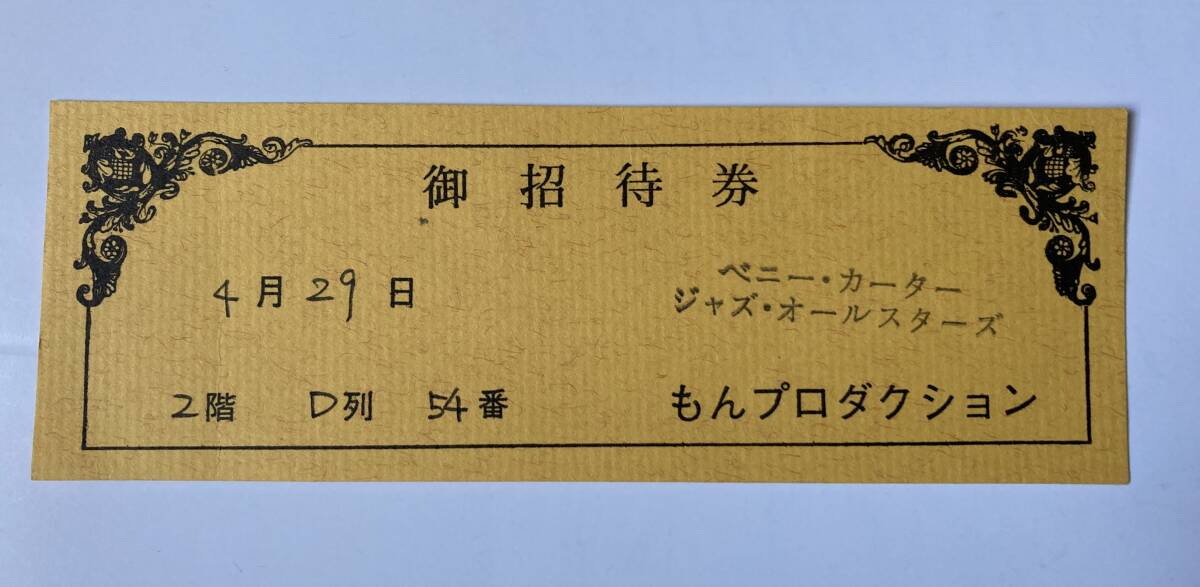 御招待券
4月29日
ベニー・カーター
ジャズ・オールスターズ
2階 D列 54番
もんプロダクション